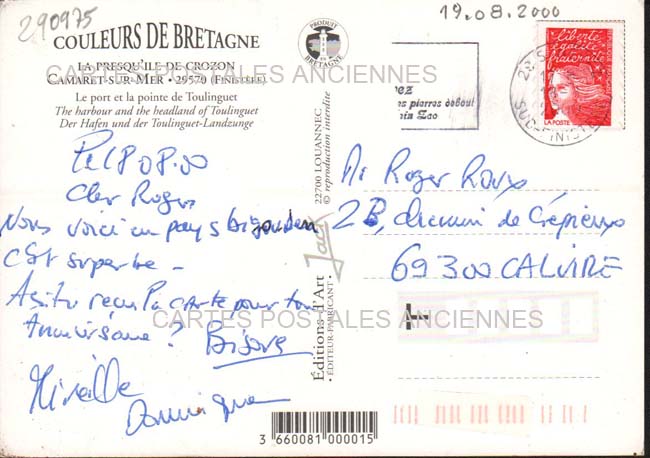 290975
COULEURS DE BRETAGNE
LA PRESQU'ILE DE CROZON
CAMARET-SUR-MER • 29570 (FINISTÈRE)
Le port et la pointe de Toulinguet
The harbour and the headland of Toulinguet
Der Hafen und der Toulinguet-Landzunge
CARTES POSTALES ANCIENNES
PRODUIT EN BRETAGNE
19.08.2000
pierres debout
SUD-FINISTERE
liberté
égalité
fraternité
LA POSTE
Le 18 08.00
Cher Roger
Nous voici en pays bigouden
C'est superbe -
As-tu reçu la carte pour ton
Anniversaire ? Bisous
Mireille
Dominique
22700 LOUANNEC
© reproduction interdite
Jack
Editions d'Art
• ÉDITEUR-FABRICANT •
Mr Roger Roux
2B, chemin de Crépieux
69300 CALUIRE
CARTES POSTALES ANCIENNES
3 660081 000015